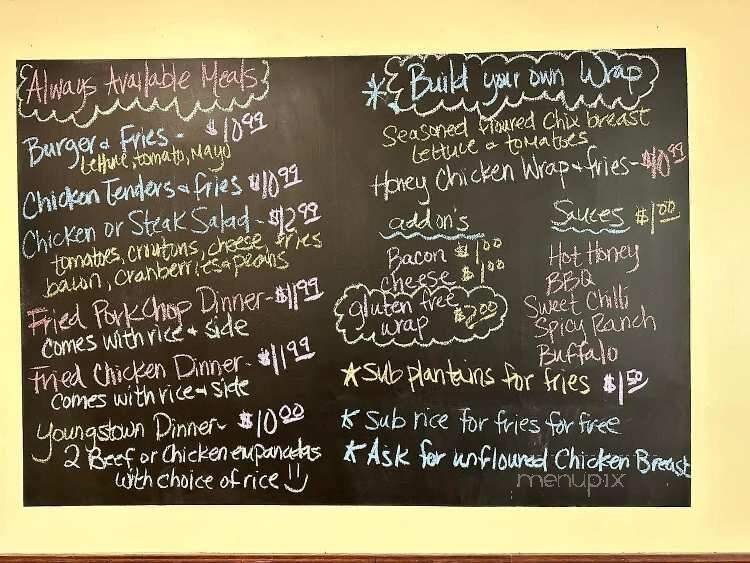 Always Available Meals
Burger & Fries - $10.99
Lettuce, tomato, Mayo
Chicken Tenders & fries $10.99
Chicken or Steak Salad - $12.99
tomatoes, croutons, cheese, fries
bacon, Cranberries & pecans
Fried Pork Chop Dinner - $11.99
comes with rice & side
Fried Chicken Dinner - $11.99
comes with rice & side
Youngstown Dinner - $10.00
2 Beef or Chicken empanadas
with choice of rice
* Build your own Wrap
Seasoned floured Chix breast
lettuce & tomatoes
Honey Chicken Wrap & fries - $10.99
add on's
Bacon $1.00
cheese $1.00
gluten free
wrap $2.00
Sauces $1.00
Hot Honey
BBQ
Sweet Chilli
Spicy Ranch
Buffalo
* Sub plantains for fries $1.50
* Sub rice for fries for free
* Ask for unfloured Chicken Breast
menupix